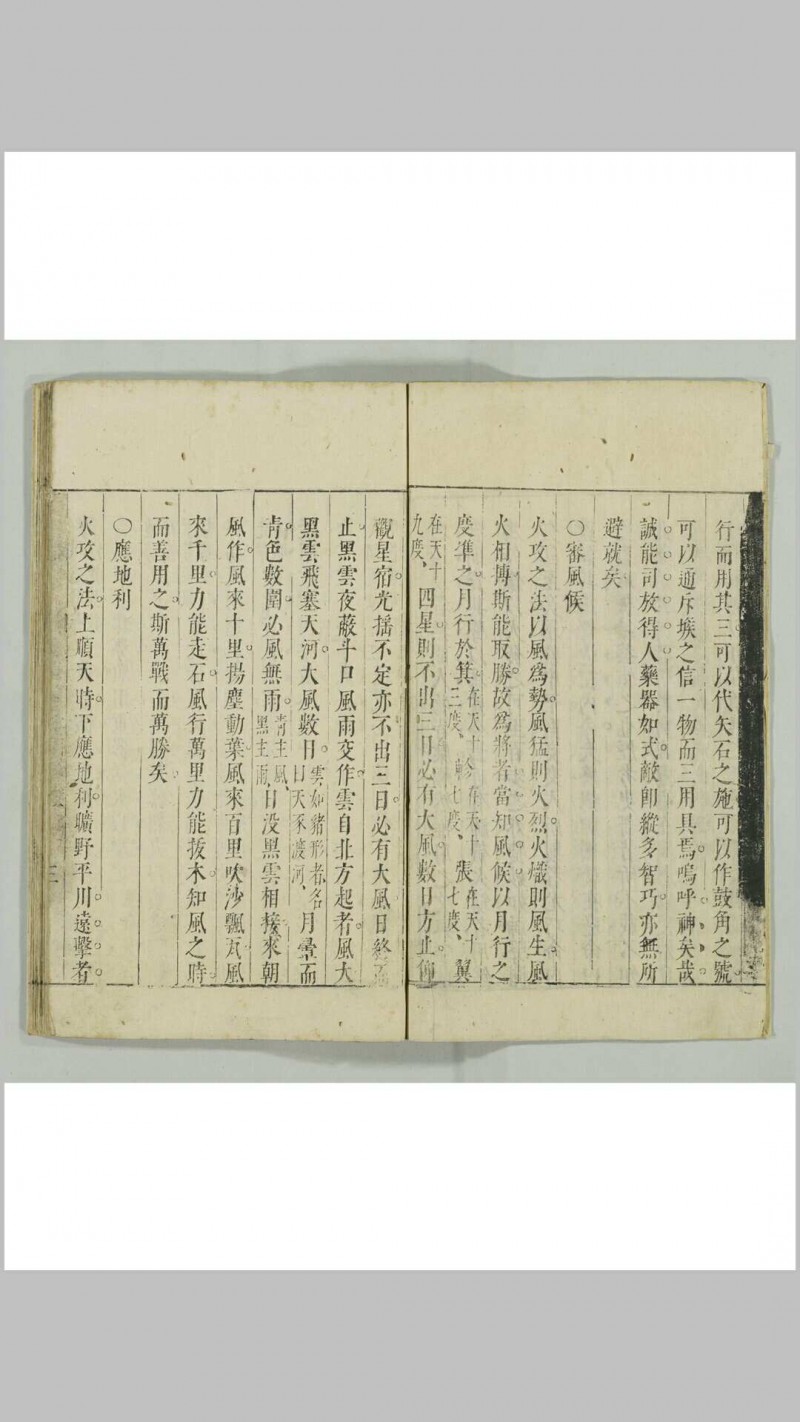 行而用其三可以代矢石之施可以作鼓角之號
可以通斥堠之信一物而三用具焉嗚呼神矣哉
誠能司放得人藥器如式敵卽縱多智巧亦無所
避就矣
○審風候
火攻之法以風爲勢風猛則火烈火熾則風生風
火相搏斯能取勝故爲將者當知風候以月行之
度準之月行於箕在天十三度、軫在天十七度、張在天十七度、翼
在天十九度、四星則不出三日必有大風數日方止仰
觀星宿光搖不定亦不出三日必有大風日終
止黑雲夜蔽斗口風雨交作雲自北方起者風大
黑雲飛塞天河大風數日雲如豬形者名曰天豕渡河、月暈而
靑色數圍必風無雨靑主風、黑主雨、日没黑雲相接來朝
風作風來十里揚塵動葉風來百里吹沙飄瓦風
來千里力能走石風行萬里力能拔木知風之時
而善用之斯萬戰而萬勝矣
○應地利
火攻之法上順天時下應地利曠野平川遠擊者
三